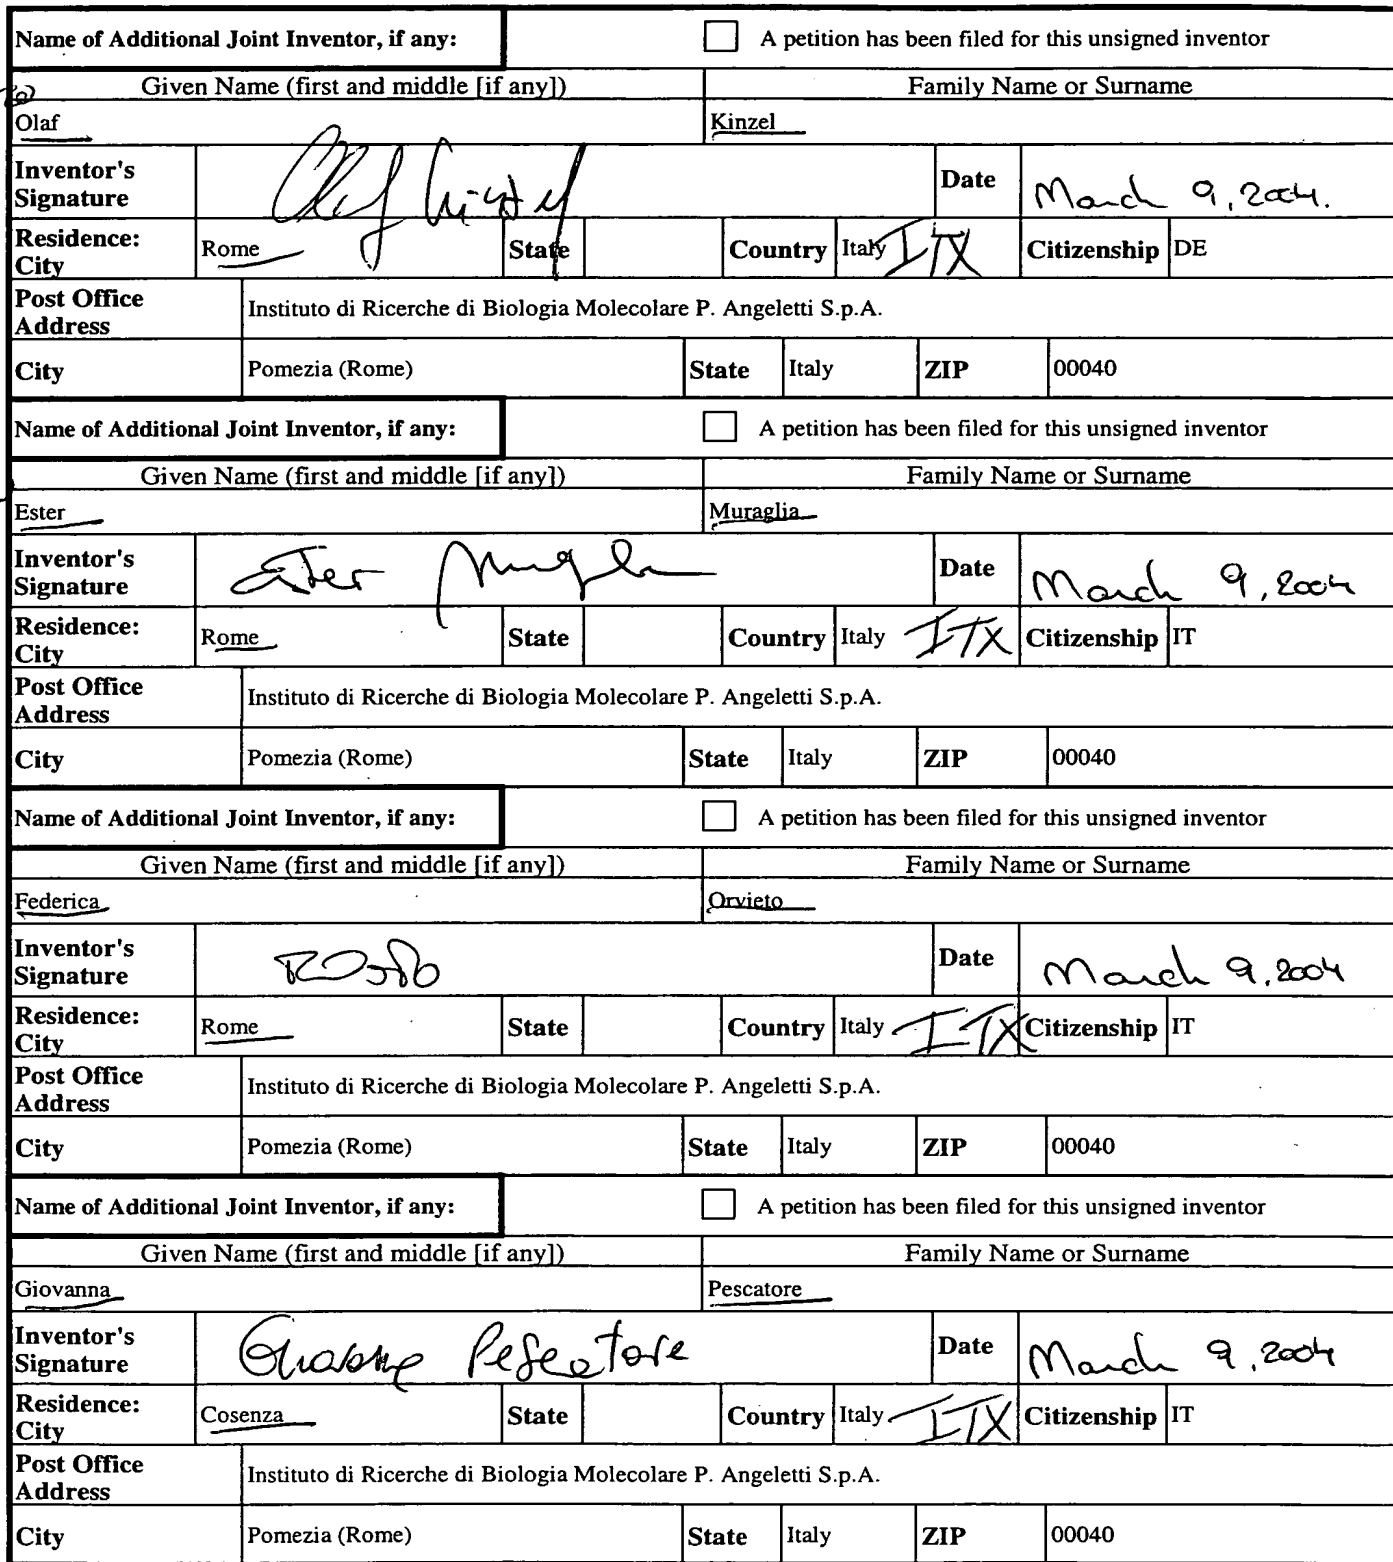 Name of Additional Joint Inventor, if any: A petition has been filed for this unsigned inventor
Given Name (first and middle [if any]) Family Name or Surname
Olaf Kinzel
Inventor's Signature Olaf Kinzel Date March 9, 2004.
Residence: City Rome State Country Italy ITX Citizenship DE
Post Office Address Instituto di Ricerche di Biologia Molecolare P. Angeletti S.p.A.
City Pomezia (Rome) State Italy ZIP 00040
Name of Additional Joint Inventor, if any: A petition has been filed for this unsigned inventor
Given Name (first and middle [if any]) Family Name or Surname
Ester Muraglia
Inventor's Signature Ester Muraglia Date March 9, 2004
Residence: City Rome State Country Italy ITX Citizenship IT
Post Office Address Instituto di Ricerche di Biologia Molecolare P. Angeletti S.p.A.
City Pomezia (Rome) State Italy ZIP 00040
Name of Additional Joint Inventor, if any: A petition has been filed for this unsigned inventor
Given Name (first and middle [if any]) Family Name or Surname
Federica Orvieto
Inventor's Signature Date March 9, 2004
Residence: City Rome State Country Italy ITX Citizenship IT
Post Office Address Instituto di Ricerche di Biologia Molecolare P. Angeletti S.p.A.
City Pomezia (Rome) State Italy ZIP 00040
Name of Additional Joint Inventor, if any: A petition has been filed for this unsigned inventor
Given Name (first and middle [if any]) Family Name or Surname
Giovanna Pescatore
Inventor's Signature Giovanna Pescatore Date March 9, 2004
Residence: City Cosenza State Country Italy ITX Citizenship IT
Post Office Address Instituto di Ricerche di Biologia Molecolare P. Angeletti S.p.A.
City Pomezia (Rome) State Italy ZIP 00040